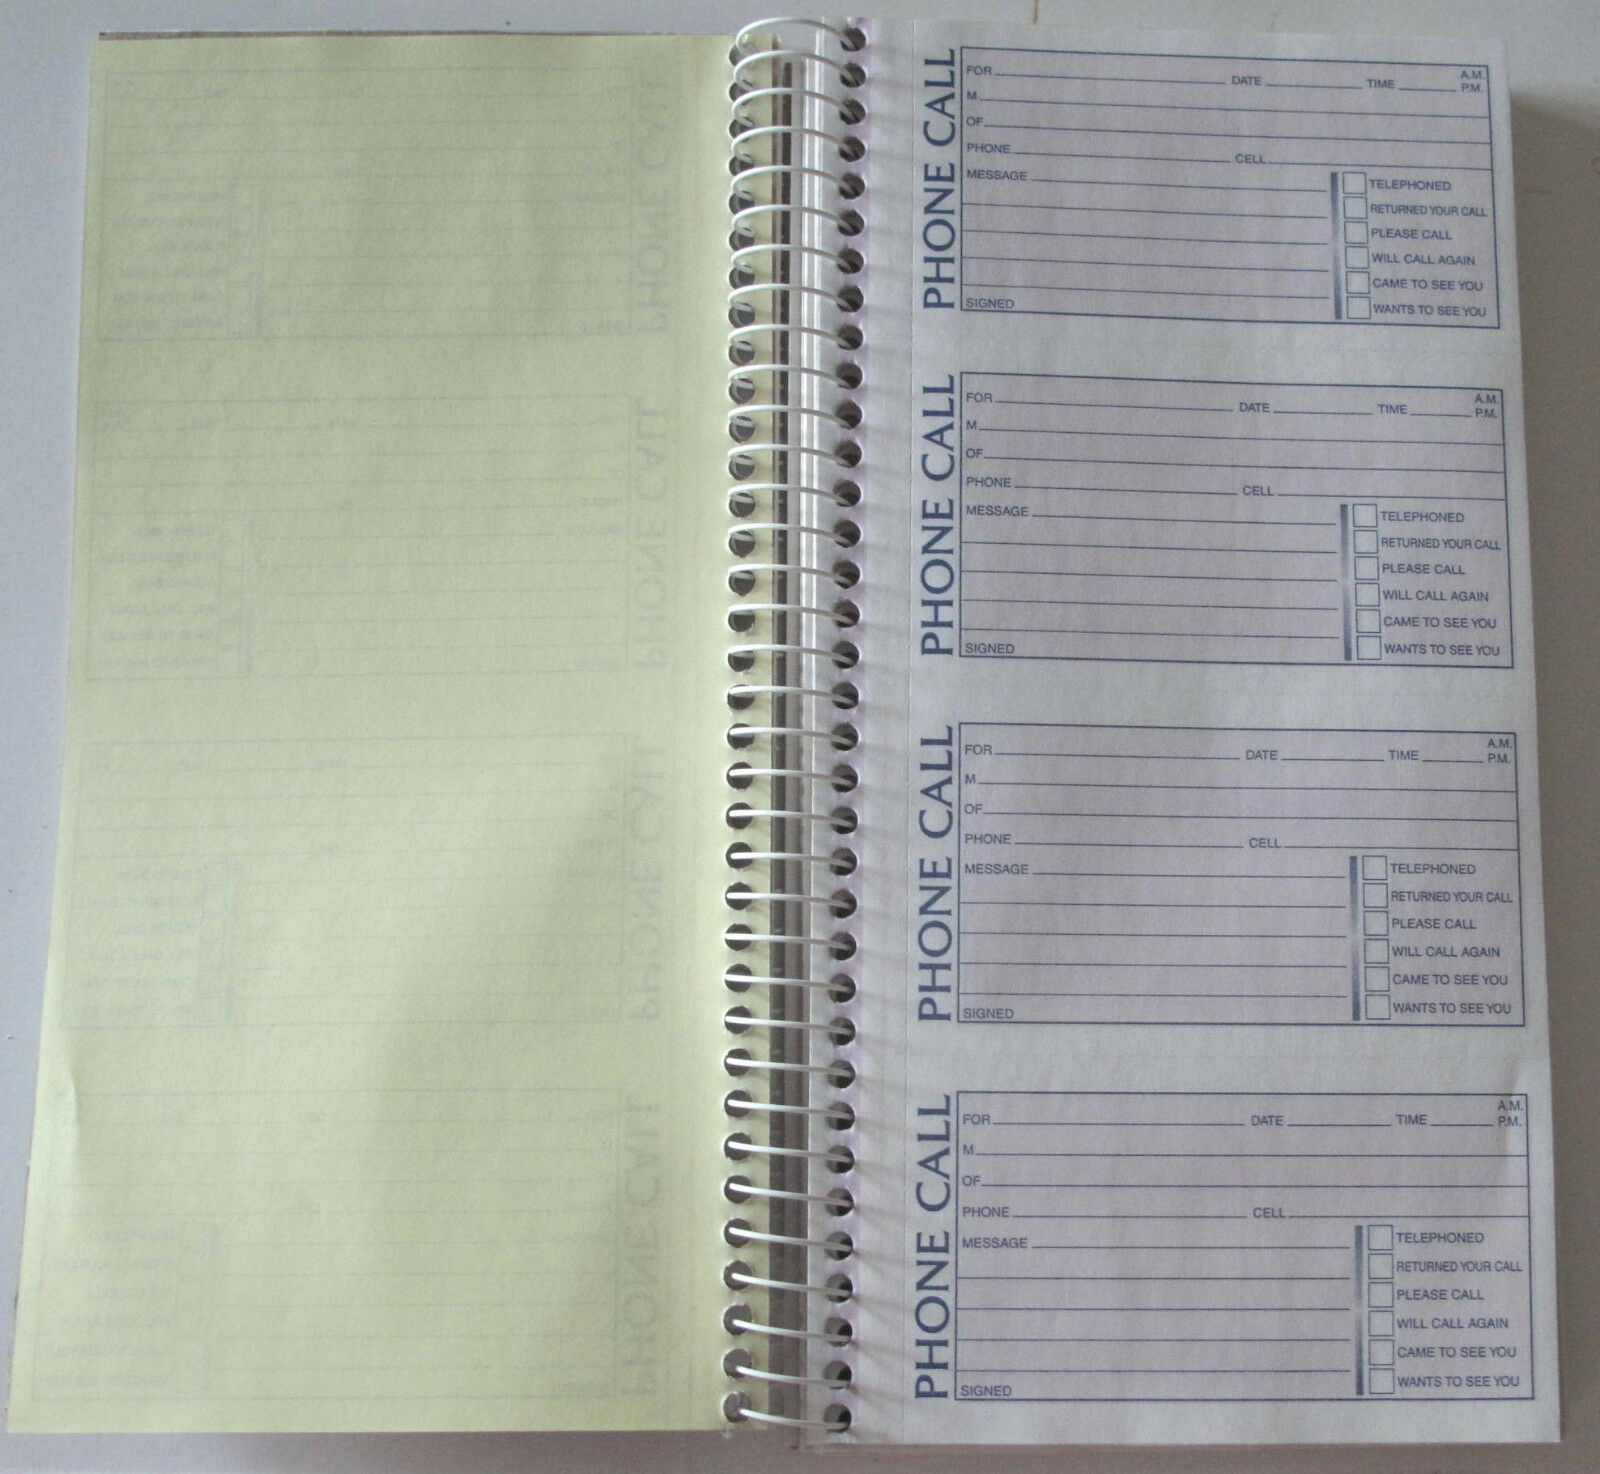 PHONE CALL
FOR DATE TIME A.M. P.M.
M
OF
PHONE CELL
MESSAGE
TELEPHONED
RETURNED YOUR CALL
PLEASE CALL
WILL CALL AGAIN
CAME TO SEE YOU
WANTS TO SEE YOU
SIGNED
PHONE CALL
FOR DATE TIME A.M. P.M.
M
OF
PHONE CELL
MESSAGE
TELEPHONED
RETURNED YOUR CALL
PLEASE CALL
WILL CALL AGAIN
CAME TO SEE YOU
WANTS TO SEE YOU
SIGNED
PHONE CALL
FOR DATE TIME A.M. P.M.
M
OF
PHONE CELL
MESSAGE
TELEPHONED
RETURNED YOUR CALL
PLEASE CALL
WILL CALL AGAIN
CAME TO SEE YOU
WANTS TO SEE YOU
SIGNED
PHONE CALL
FOR DATE TIME A.M. P.M.
M
OF
PHONE CELL
MESSAGE
TELEPHONED
RETURNED YOUR CALL
PLEASE CALL
WILL CALL AGAIN
CAME TO SEE YOU
WANTS TO SEE YOU
SIGNED